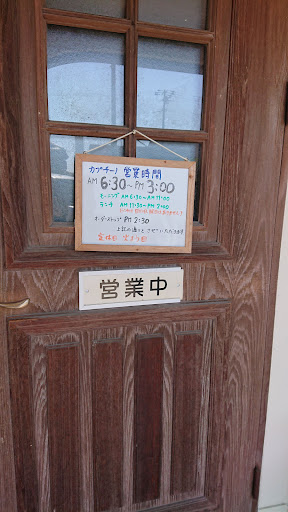 カプチーノ 営業時間
AM 6:30～PM 3:00
モーニング AM 6:30～AM 11:00
ランチ AM 11:30～PM 2:00
オーダーストップ PM 2:30
上記の通りと させていただきます
定休日
営業中